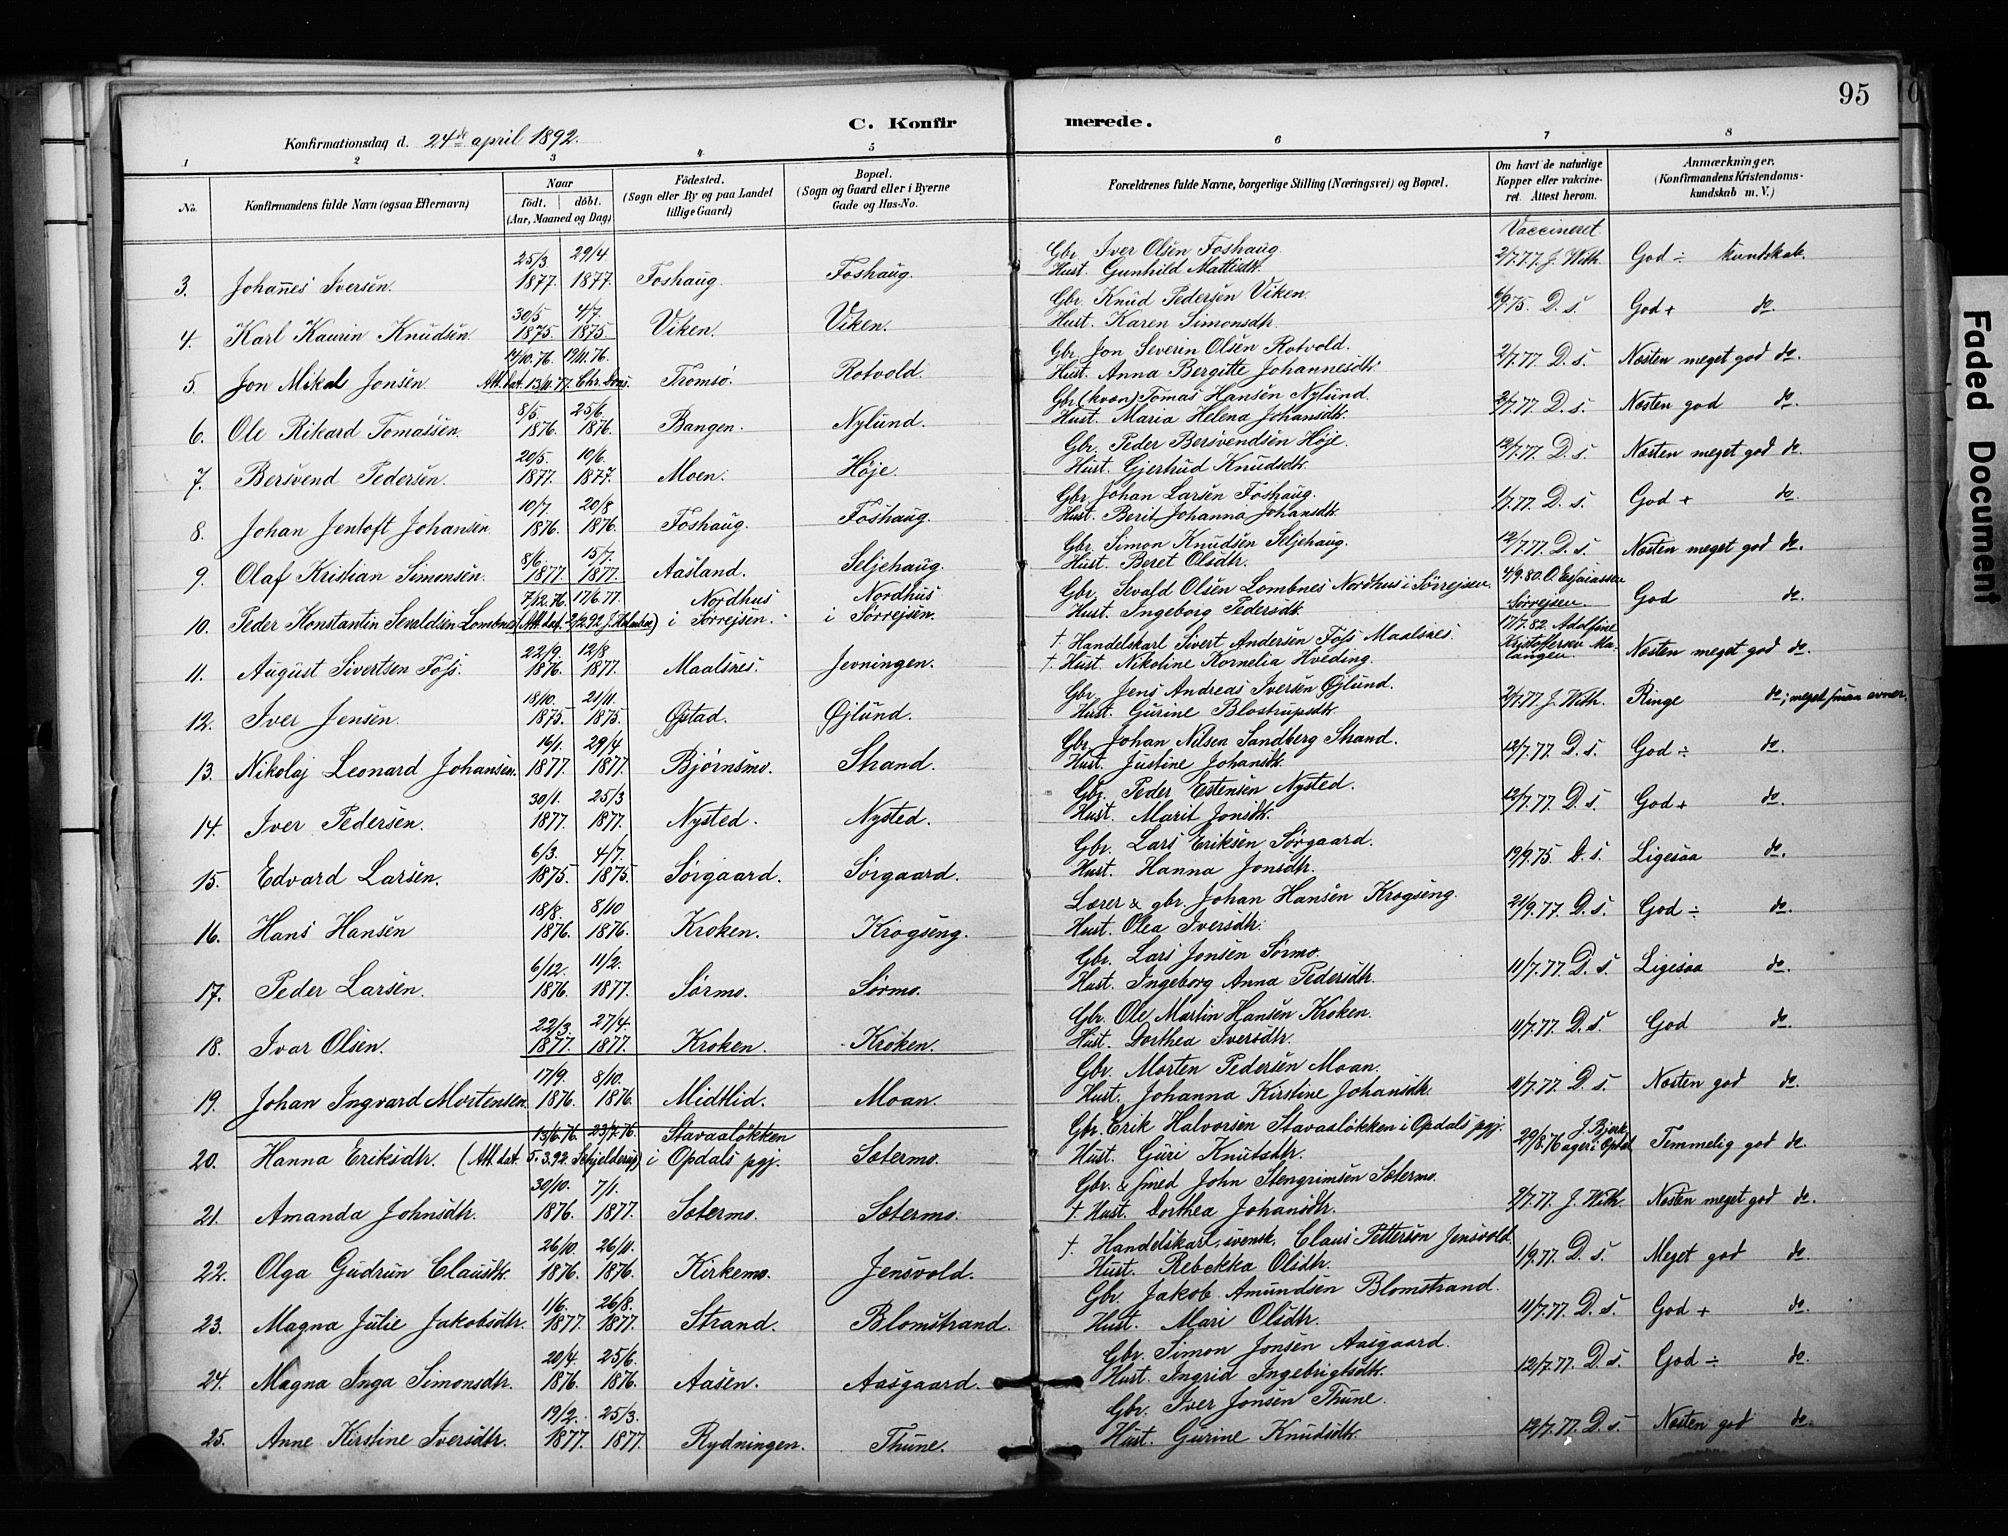 95
C. Konfirmerede.
Konfirmationsdag d. 24de april 1892.
1 2 3 4 5 6 7 8
No. Konfirmandens fulde Navn (ogsaa Efternavn) Naar født. døbt. (Aar, Maaned og Dag) Fødested. (Sogn eller By og paa Landet tillige Gaard) Bopæl. (Sogn og Gaard eller i Byerne Gade og Hus-No. Forældrenes fulde Navne, borgerlige Stilling (Næringsvei) og Bopæl. Om havt de naturlige Kopper eller vaccineret. Attest herom. Anmærkninger. (Konfirmandens Kristendomskundskab m. V.)
Vaccineret
3. Johannes Iversen. 25/3 1877. 29/4 1877. Foshaug. Foshaug. Gbr. Iver Olsen Foshaug. Hust. Gunhild Mattisdtr. 2/7.77. J. With. God ÷ kundskab.
4. Karl Kaurin Knudsen. 30/5 1875. 4/7. 1875 Viken. Viken. Gbr. Knud Pedersen Viken. Hust. Karen Simonsdtr. 6/9.75. D. s. God + do.
5. Jon Mikal Jonsen. Att. dat. 13/11.77. Chr. 76. 76. Tromsø. Rotvold. Gbr. Jon Severin Olsen Rotvold. Hust. Anna Bergitte Johannesdtr. 2/7.77. D. s. Næsten meget god do.
6. Ole Rikard Tomassen. 8/5. 1876. 25/6. 1876. Bangen. Nylund. Gbr. (kvæn) Tomas Hansen Nylund. Hust. Maria Helena Johansdtr. 2/7.77. D. s. Næsten god do.
7. Bersvend Pedersen. 20/5. 1877. 10/6. 1877. Moen. Høje. Gbr. Peder Bersvendsen Høje. Hust. Gjertrud Knudsdtr. 12/7.77. D. s. Næsten meget god do.
8. Johan Jentoft Johansen. 10/7. 1876. 20/8 1876. Foshaug. Foshaug. Gbr. Johan Larsen Foshaug. Hust. Berit Johanna Johansdtr. 1/7.77. D. s. God + do.
9. Olaf Kristian Simonsen. 8/6. 1877. 15/7. 1877. Aasland. Seljehaug. Gbr. Simon Knudsen Seljehaug. Hust. Beret Olsdtr. 12/7.77. D. s. Næsten meget god do.
10. Peder Konstantin Sevaldsen Lombnes (Att. dat. 2/2.92. J. Holmboe) 7/12.76. 17/6.77. Nordhus i Sørrejsen. Nordhus i Sørrejsen. Gbr. Sevald Olsen Lombnes Nordhus i Sørrejsen. Hust. Ingeborg Pedersdtr. 4/9.80. O. Esaiassen Sørrejsen. God do.
11. August Sivertsen Foss. 22/9. 1876. 12/8 1877. Maalsnes. Jevningen. † Handelskarl Sivert Andersen Foss Maalsnes. † Hust. Nikoline Kornelia Hveding. 17/7.82. Adolfine Kristoffersen Malangen. Næsten meget god do.
12. Iver Jensen. 18/10. 1875. 21/11. 1875. Øvstad. Øjlund. Gbr. Jens Andreas Iversen Øjlund. Hust. Gurine Blostrupsdtr. 20/7.77. J. With. Ringe do; meget smaa evner.
13. Nikolaj Leonard Johansen. 16/1. 1877. 29/4 1877. Bjørnsmo. Strand. Gbr. Johan Nilsen Sandberg Strand. Hust. Justine Johansdtr. 12/7.77. D. s. God ÷ do.
14. Iver Pedersen. 30/1. 1877. 25/3 1877. Nysted. Nysted. Gbr. Peder Estensen Nysted. Hust. Marit Jonsdtr. 12/7.77. D. s. God + do.
15. Edvard Larsen. 6/3. 1875. 4/7. 1875. Sørgaard. Sørgaard. Gbr. Lars Eriksen Sørgaard. Hust. Hanna Jonsdtr. 19/9.75. D. s. Ligesaa do.
16. Hans Hansen 18/8. 1876. 8/10 1876. Kroken. Krogseng. Lærer & gbr. Johan Hansen Krogseng. Hust. Olea Iversdtr. 21/9.77. D. s. God ÷ do.
17. Peder Larsen. 6/12. 1876. 11/2. 1877. Sørmo. Sørmo. Gbr. Lars Jonsen Sørmo. Hust. Ingeborg Anna Pedersdtr. 11/7.77. D. s. Ligesaa do.
18. Ivar Olsen. 22/3. 1877. 27/4. 1877. Kroken. Kroken. Gbr. Ole Martin Hansen Kroken. Hust. Dorthea Iversdtr. 11/7.77. D. s. God do.
19. Johan Ingvard Mortensen. 17/9. 1876. 8/10. 1876. Midtlid. Moan. Gbr. Morten Pedersen Moan. Hust. Johanna Kirstine Johansdtr. 11/7.77. D. s. Næsten god do.
20. Hanna Eriksdtr. (Att. dat. 5.3.92. Schjelderup) 13/6.76. 23/7.76. Stavaaløkken i Opdals pgj. Sætermo. Gbr. Erik Halvorsen Stavaaløkken i Opdals pgj. Hust. Guri Knutsdtr. 29/8.76 J. Bjerkager i Opdal Temmelig god do.
21. Amanda Johnsdtr. 30/10. 1876. 7/1. 1877. Sætermo. Sætermo. Gbr. & smed John Stengrimsen Sætermo. † Hust. Dorthea Johansdtr. 9/7.77. J. With. Næsten meget god do.
22. Olga Gudrun Clausdtr. 26/10. 1876. 26/11. 1876. Kirkemo. Jensvold. †. Handelskarl, svensk, Claus Petterson Jensvold. Hust. Rebekka Olsdtr. 1/9.77. D. s. Meget god do.
23. Magna Julie Jakobsdtr. 1/6. 1877. 26/8. 1877. Strand. Blomstrand. Gbr. Jakob Amundsen Blomstrand. Hust. Mari Olsdtr. 11/7.77. D. s. God + do.
24. Magna Inga Simonsdtr. 20/4. 1876. 25/6. 1876. Aasen. Aasgaard. Gbr. Simon Jonsen Aasgaard. Hust. Ingrid Ingebrigtsdtr. 12/7.77. D. s. God ÷ do.
25. Anne Kirstine Iversdtr. 19/2. 1877. 25/3. 1877. Rydningen. Thune. Gbr. Iver Jonsen Thune. Hust. Gurine Knudsdtr. 12/7.77. D. s. Næsten god do.
Faded Document